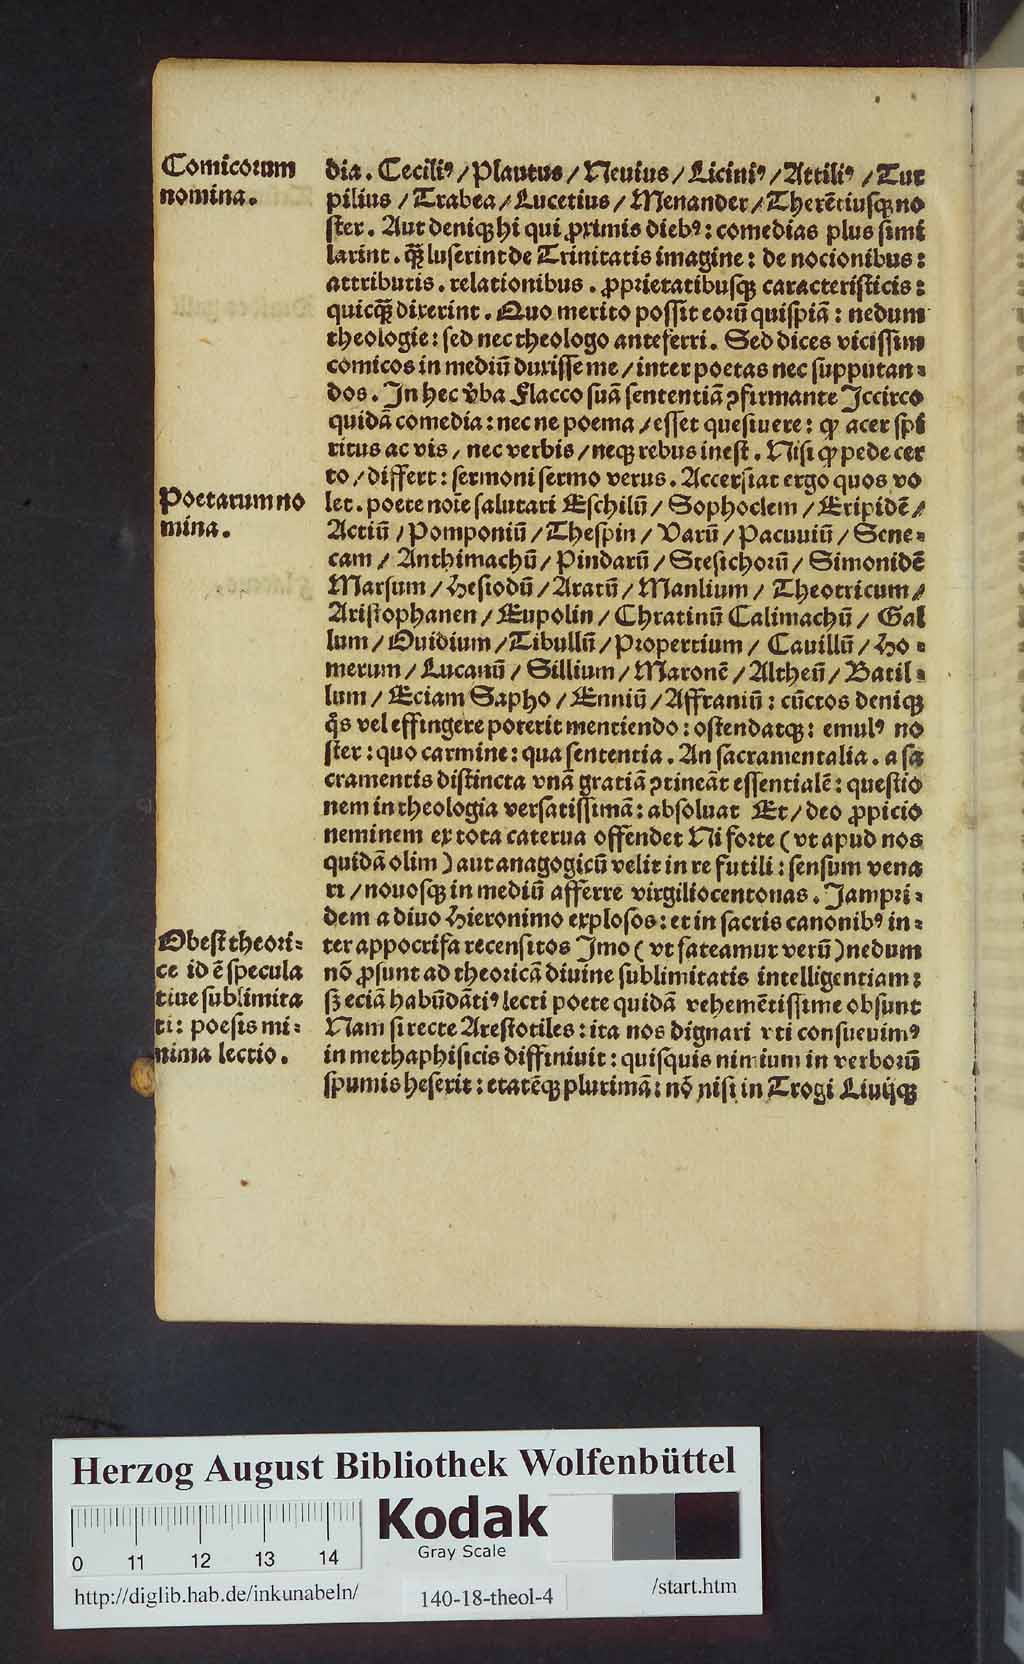 Comicorum
nomina.
dia. Ceciliꝰ / Plautus / Neuius / Liciniꝰ / Attiliꝰ / Tur
pilius / Trabea / Lucetius / Menander / Therẽtiusqꝫ no
ster. Aut deniqꝫ hi qui ꝓximis diebꝰ: comedias plus simi
larint. qͣꝫ luserint de Trinitatis imagine: de nocionibus:
attributis. relationibus. ꝓprietatibusqꝫ caracteristicis:
quicqͣꝫ dixerint. Quo merito possit eorũ quispiã: nedum
theologie: sed nec theologo anteferri. Sed dices vicissim
comicos in mediũ duxisse me / inter poetas nec supputan⸗
dos. In hec v̓ba Flacco suã sententiã ꝯfirmante Iccirco
quidã comedia: nec ne poema / esset quesiuere: ꝙ acer spi
ritus ac vis / nec verbis / neqꝫ rebus inest. Nisi ꝙ pede cer
to / differt: sermoni sermo verus. Accersiat ergo quos vo
Poetarum no
mina.
let. poete noĩe salutari Eschilũ / Sophoclem / Eripidẽ /
Actiũ / Pomponiũ / Thespin / Varũ / Pacuuiũ / Sene⸗
cam / Anthimachũ / Pindarũ / Stesichorũ / Simonidẽ
Marsum / Hesiodũ / Aratũ / Manlium / Theotricum /
Aristophanen / Eupolin / Chratinũ Calimachũ / Gal
lum / Ouidium / Tibullũ / Propertium / Cauillũ / Ho⸗
merum / Lucanũ / Sillium / Maronẽ / Altheũ / Batil⸗
lum / Eciam Sapho / Enniũ / Affraniũ: cũctos deniqꝫ
qͦs vel effingere poterit mentiendo: ostendatqꝫ: emulꝰ no
ster: quo carmine: qua sententia. An sacramentalia. a sa
cramentis distincta vnã gratiã ꝯtineãt essentialẽ: questio
nem in theologia versatissimã: absoluat Et / deo ꝓpicio
neminem ex tota caterua offendet Ni forte (vt apud nos
quidã olim) aut anagogicũ velit in re futili: sensum vena
ri / nouosqꝫ in mediũ afferre virgiliocentonas. Iampri⸗
dem a diuo Hieronimo explosos: et in sacris canonibꝰ in⸗
Obest theori⸗
ce id ẽ specula
tiue sublimita
ti: poesis mi⸗
nima lectio.
ter appocrifa recensitos Imo (vt fateamur verũ) nedum
nõ ꝓsunt ad theoricã diuine sublimitatis intelligentiam:
sꝫ eciã habũdãtiꝰ lecti poete quidã vehemẽtissime obsunt
Nam si recte Arestotiles: ita nos dignari vti consueuimꝰ
in methaphisicis diffiniuit: quisquis nimium in verborũ
spumis heserit: etatẽqꝫ plurimã: nõ nisi in Trogi Liuijqꝫ
Herzog August Bibliothek Wolfenbüttel
Kodak
Gray Scale
0 11 12 13 14
http://diglib.hab.de/inkunabeln/
140-18-theol-4
/start.htm